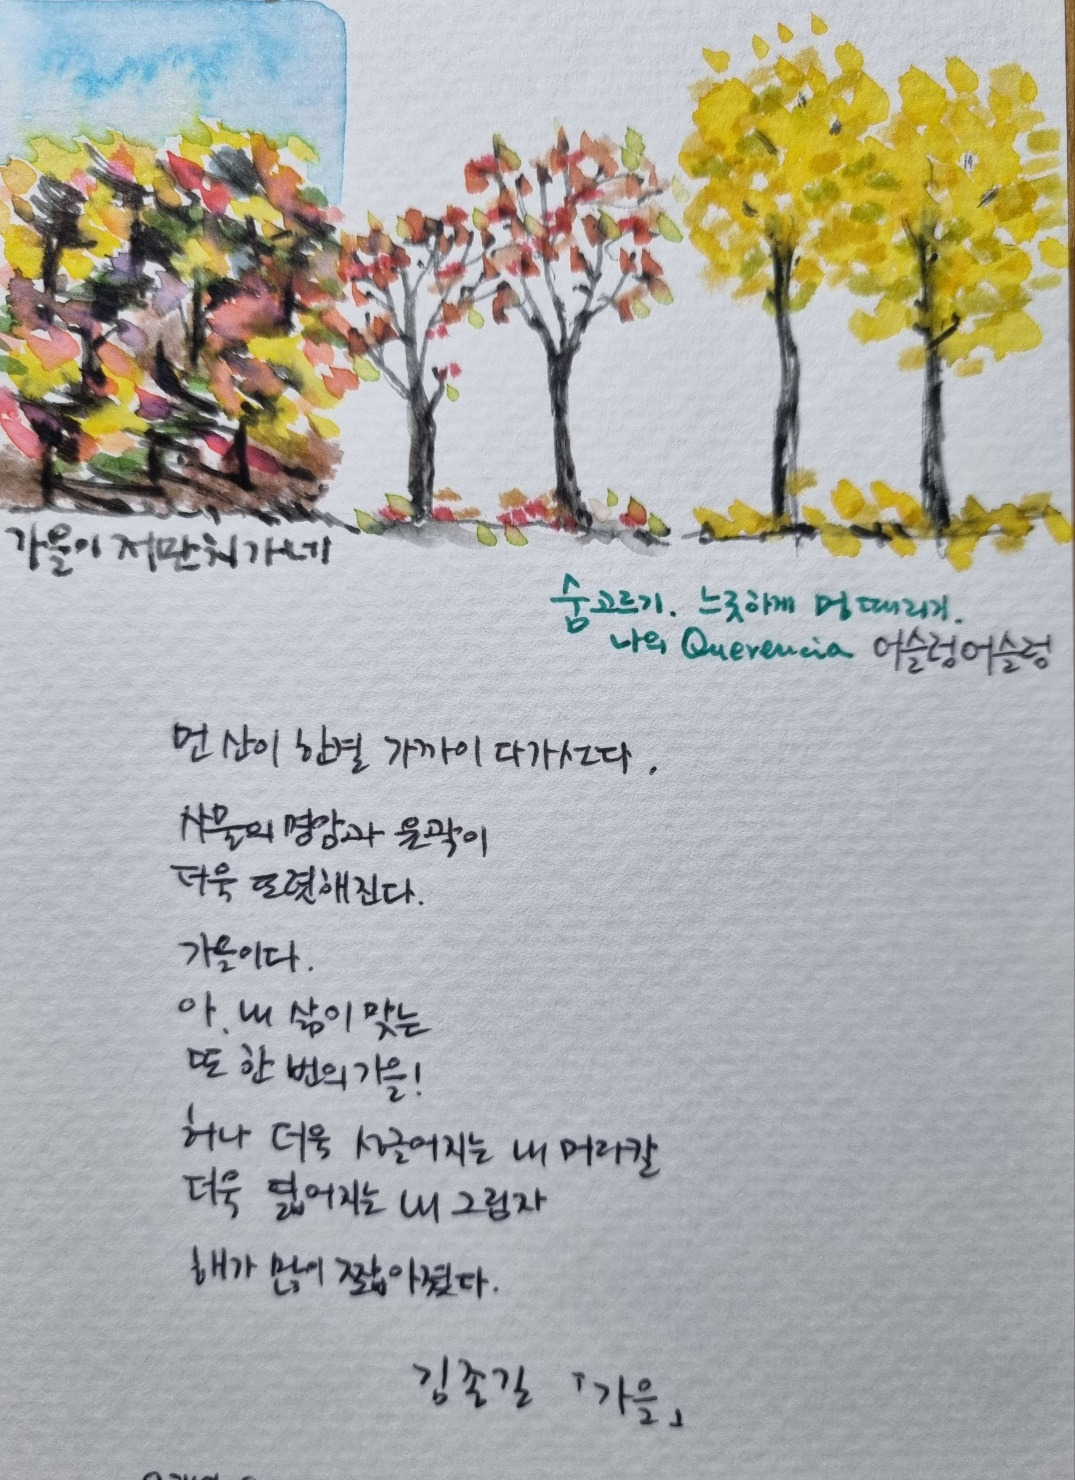 가을이 저만치 가네
숨고르기. 느긋하게 멍때리기.
나의 Querencia 어슬렁어슬렁
먼 산이 한결 가까이 다가선다.
사물의 명암과 윤곽이
더욱 또렷해진다.
가을이다.
아, 내 삶이 맞는
또 한 번의 가을!
허나 더욱 성글어지는 내 머리칼
더욱 엷어지는 내 그림자
해가 많이 짧아졌다.
김종길 「가을」